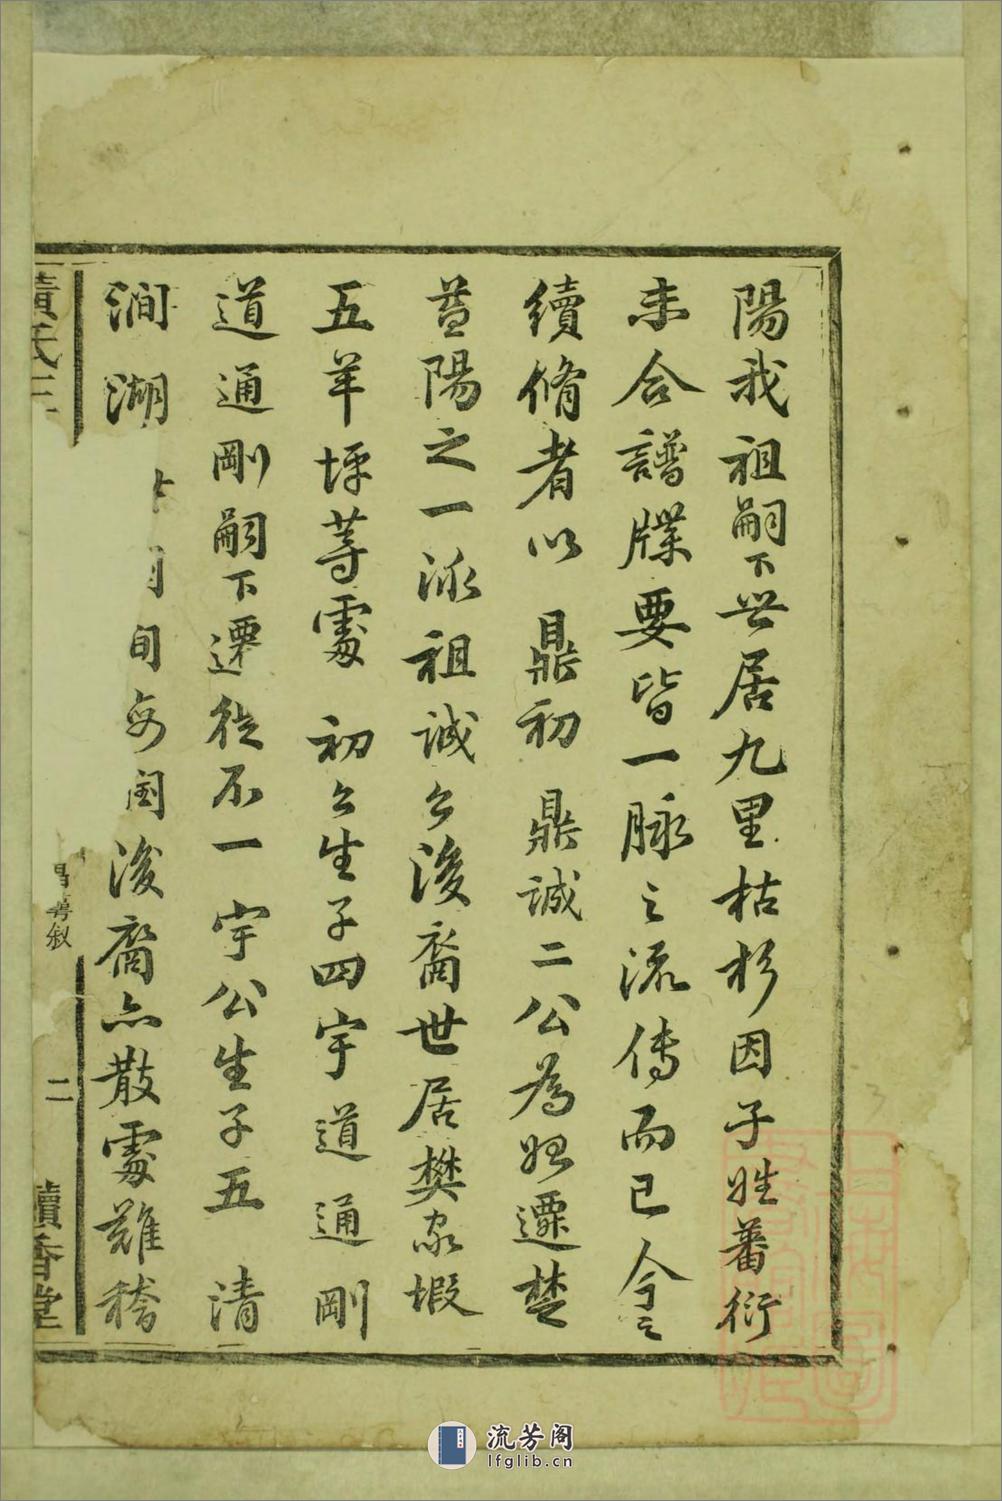 陽我祖嗣下世居九里枯杉因子姓蕃衍
未合譜牒要皆一脉之流傳而已今之
續脩者以 鼎初 鼎誠二公為始遷楚
益陽之一派祖誠公後裔世居樊家塅
五羊坪等處 初公生子四宇 道 通 剛
道通剛嗣下遷徙不一宇公生子五 清
澗 湖 旬 後裔亦散處難稽
黃氏三
昌壽敘
二
讀香堂
流芳阁
lfglib.cn